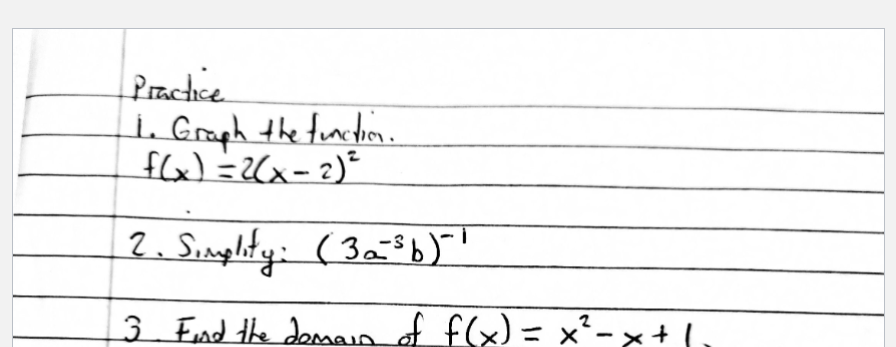 Practice
1. Graph the function.
f(x) = 2(x - 2)²
2. Simplify: (3a⁻³b)⁻¹
3. Find the domain of f(x) = x² - x + 1.